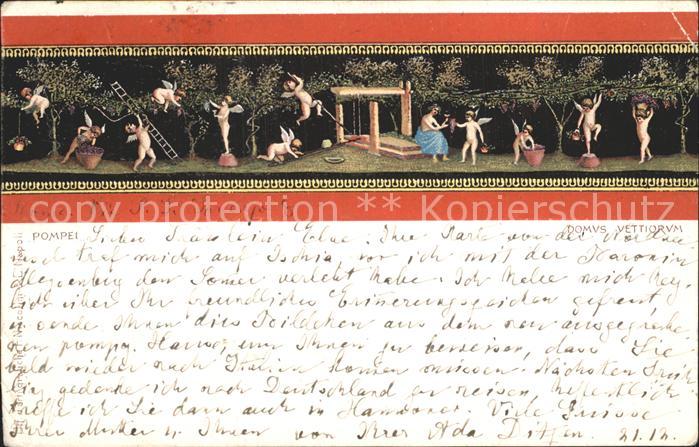 copyright by www.ansichtskartenversand.com
POMPEI
DOMVS VETTIORVM
Liebes Fräulein Else. Ihre Karte von der Nordsee
traf mich auf Ischia wo ich mit der Baronin
den Sommer verlebt habe. Ich habe mich
über Ihr freundliches Erinnerungszeichen gefreut,
sende Ihnen dies Bildchen aus dem neu ausgegrabe-
nen pomp. Hause, um Ihnen zu beweisen, dass Sie
bald wieder nach Italien kommen müssen. Nächsten Früh-
ling gedenke ich nach Deutschland zu reisen, hoffentlich
treffe ich Sie dann auch in Hannover. Viele Grüsse
Ihrer Mutter u. Ihnen von Ihrer Ada 31.12.